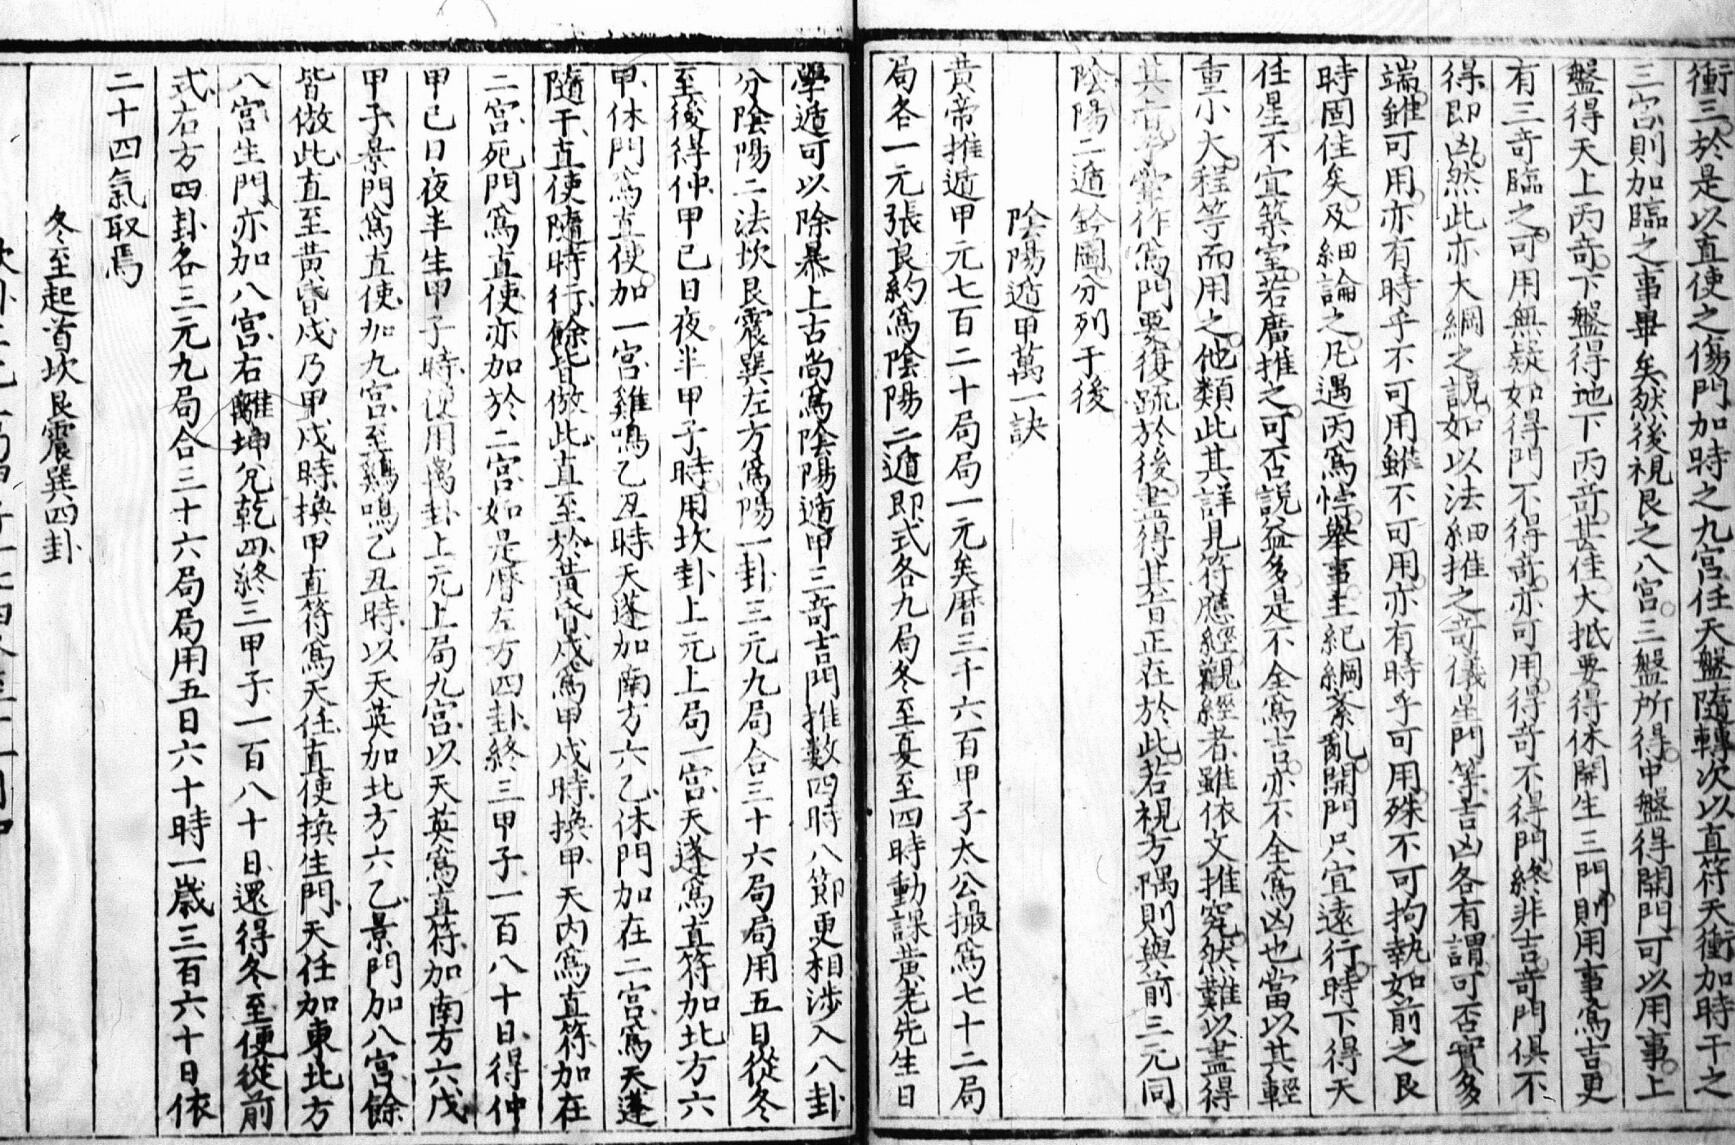 衝三於是以直使之傷門加時之九宮任天盤隨轉次以直符天衝加時干之
三宮則加臨之事畢矣然後視艮之八宮三盤所得中盤得開門可以用事上
盤得天上丙奇下盤得地下丙奇甚佳大抵要得休開生三門則用事為吉更
有三奇臨之可用無疑如得門不得奇亦可用得奇不得門終非吉奇門俱不
得即凶然此亦大綱之說如以法細推之奇儀星門等吉凶各有謂可否實多
端雖可用亦有時乎不可用雖不可用亦有時乎可用殊不可拘執如前之艮
時固佳矣及細論之凡遇丙為悖舉事主紀綱紊亂開門只宜遠行時下得天
任星不宜築室若廣推之可否說益多是不全為吉亦不全為凶也當以其輕
重小大程等而用之他類此其詳見符應經觀經者雖依文推究然難以盡得
其作為門要復疏於後盡得其旨正在於此若視方隅則與前三元同
陰陽二遁鈐圖分列于後
陰陽遁甲萬一訣
黃帝推遁甲元七百二十局局一元矣曆三千六百甲子太公撮為七十二局
局各一元張良約為陰陽二遁即式各九局冬至夏至四時動課黃老先生日
學遁可以除暴上古尚為陰陽遁甲三奇吉門推數四時八節更相涉入八卦
分陰陽二法坎艮震巽左方為陽一卦三元九局合三十六局局用五日從冬
至後得仲甲己日夜半甲子時用坎卦上元上局一宮天蓬為直符加北方六
甲休門為直使加一宮雞鳴乙丑時天蓬加南方六乙休門加在二宮為天蓬
隨干直使隨時行餘皆倣此直至於黃昏戌為甲戌時換甲天內為直符加在
二宮死門為直使亦加於二宮如是曆左方四卦終三甲子一百八十日得仲
甲己日夜半生甲子時後用离卦上元上局九宮以天英為直符加南方六戊
甲子景門為直使加九宮至鷄鳴乙丑時以天英加北方六乙景門加八宮餘
皆倣此直至黃昏戌乃甲戌時換甲直符為天任直使換生門天任加東北方
八宮生門亦加八宮右離坤兌乾四終三甲子一百八十日還得冬至便從前
式右方四卦各三元九局合三十六局局用五日六十時一歲三百六十日依
二十四氣取焉
冬至起首坎艮震巽四卦